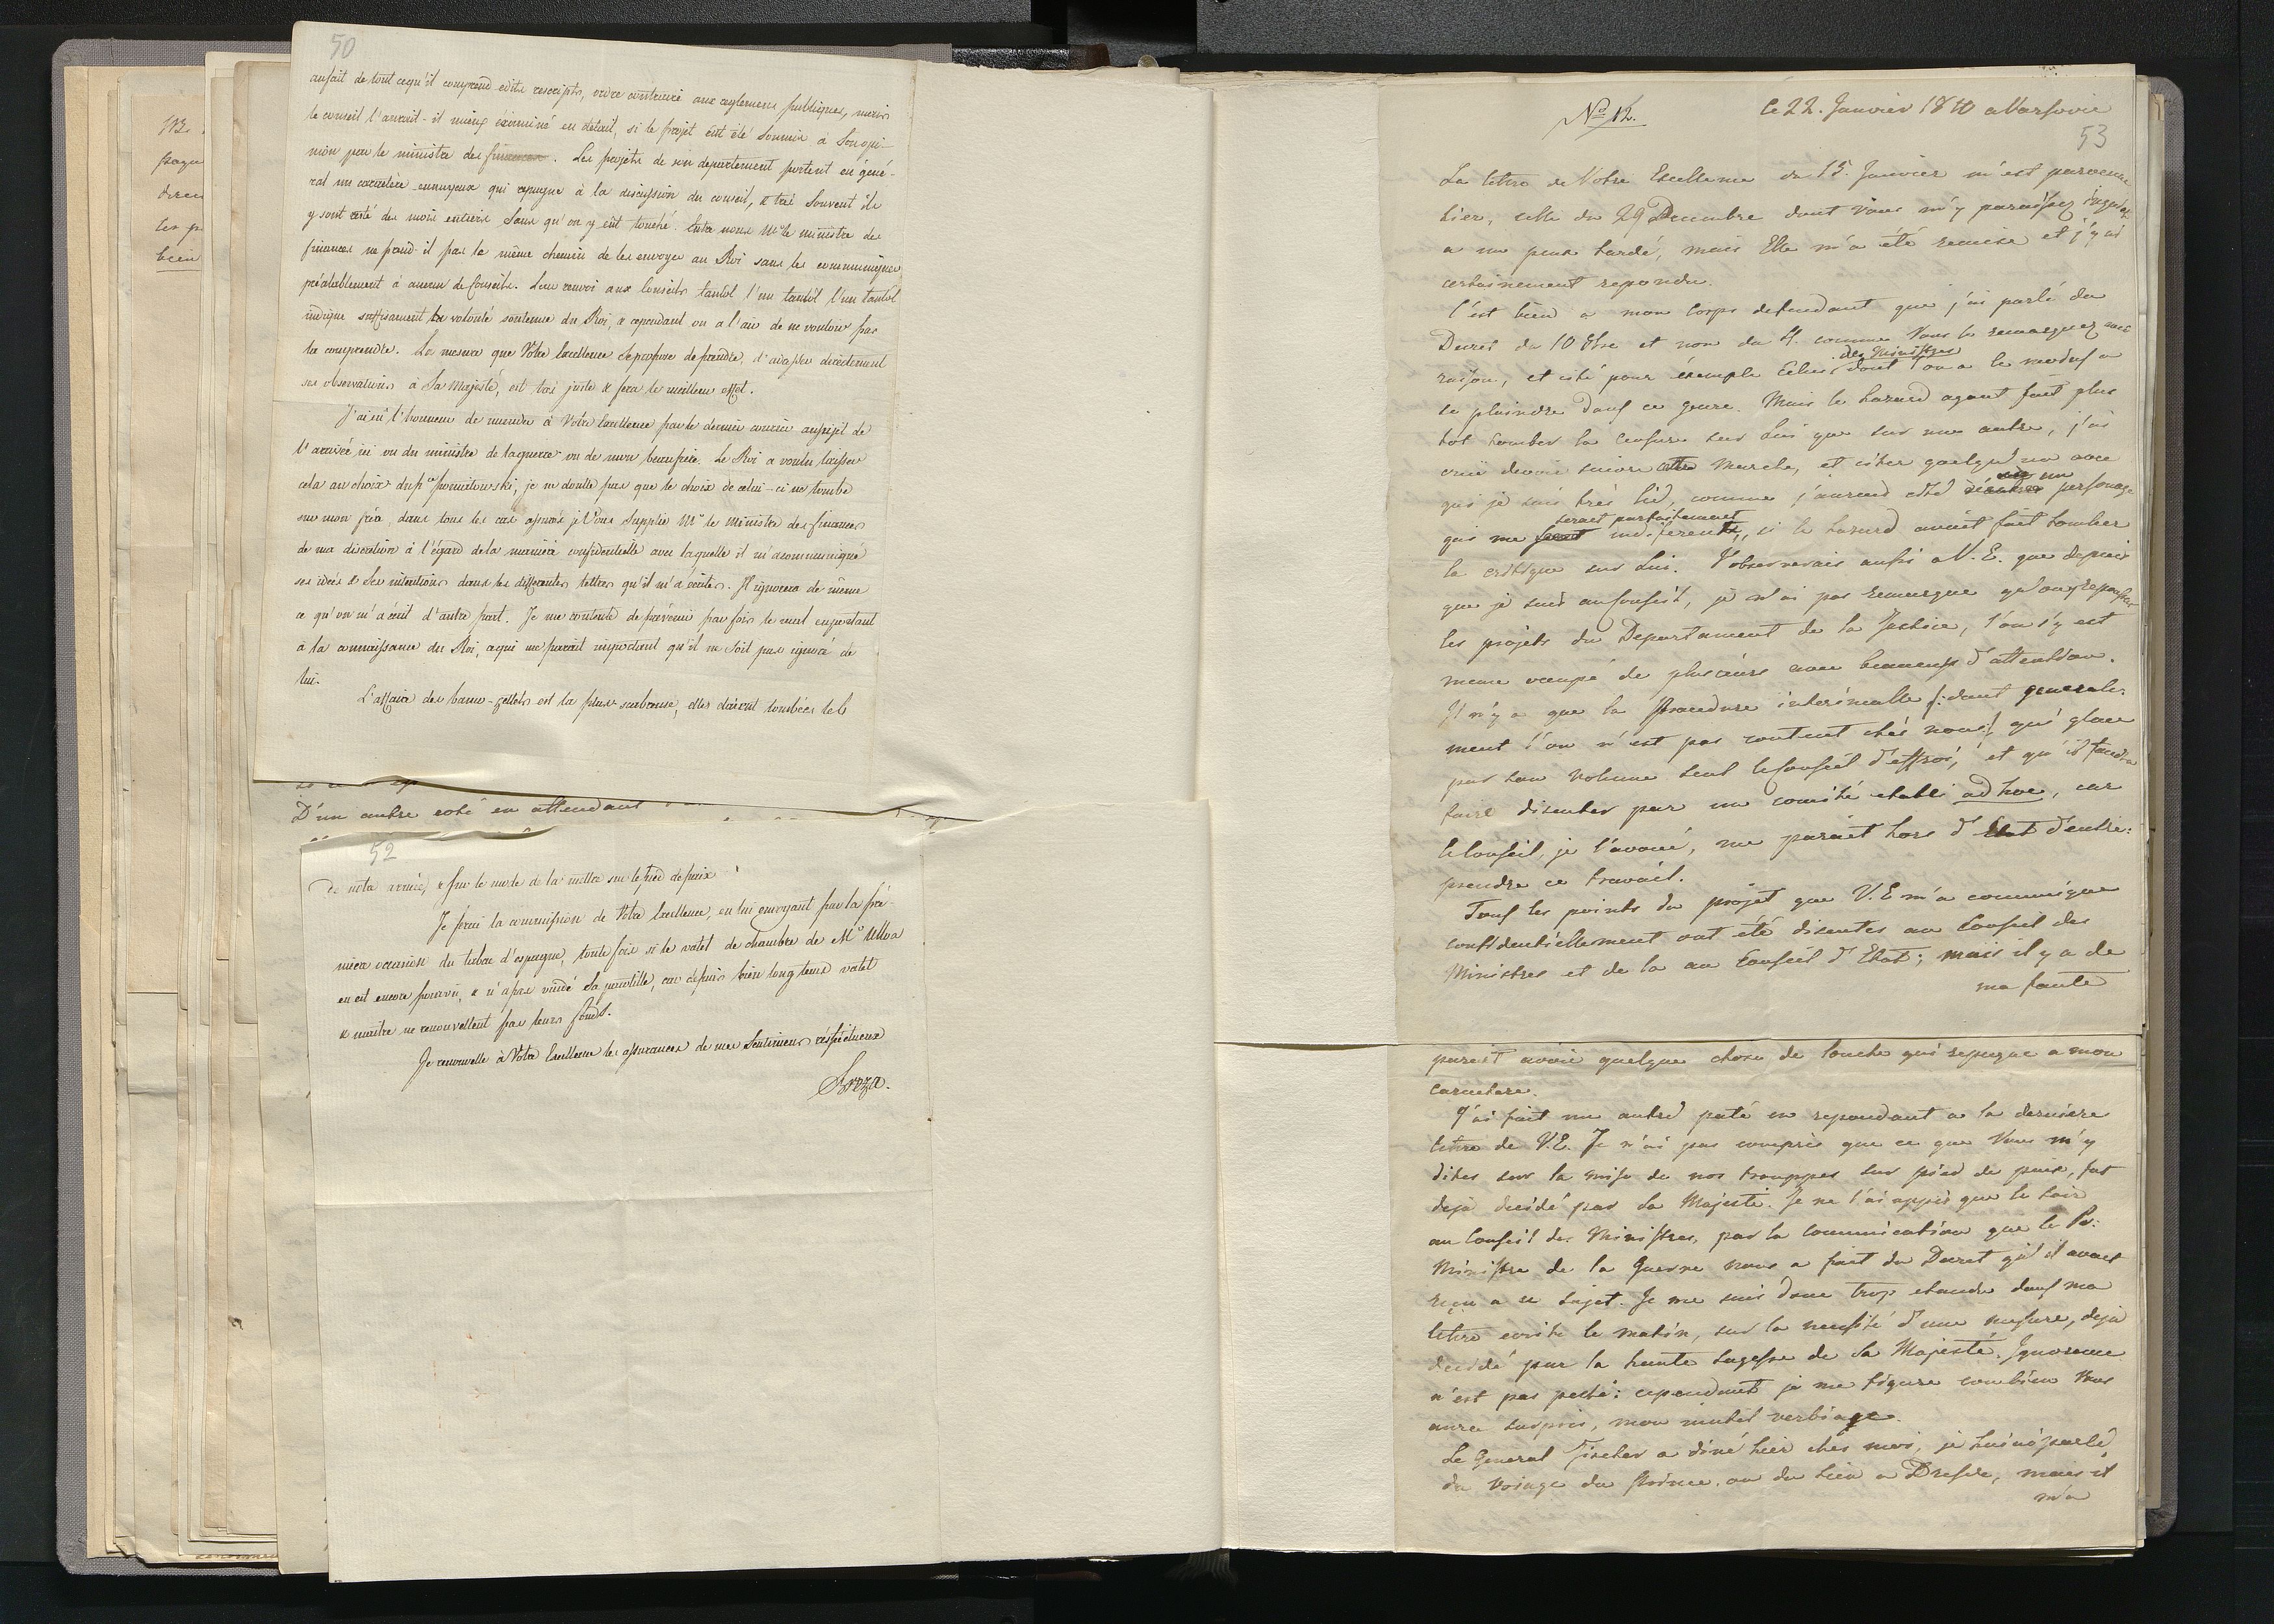 50
aufait de tout cequ'il comprend édits rescripts, ordre contraire aux reglemens publiques, mais
le conseil l'aurait-il mieux éxaminé en détail, si le projet eût été soumis à son opi-
nion par le ministre des finances. Les projets de son departement portent en géné-
ral un caractère ennuyeux qui repugne à la discussion du conseil, & trés souvent ils
y sont resté des mois entiers sans qu'on y eût touché. Entre nous Mr le ministre des
finances ne prend-il pas le même chemin de les envoyer au Roi sans les communiquer
préalablement à aucun de Conseils. Leur renvoi aux Conseils tantôt l'un tantôt l'un tantôt
indique suffisament la volonté soutenue du Roi, & cependant on a l'air de ne vouloir pas
la comprendre. La mesure que Votre Excellence se propose de prendre d'adresser directement
ses observations à Sa Majesté, est très juste & fera le meilleur effet.
J'ai eu l'honneur de mander à Votre Excellence par le dernier courrier au sujet de
l'arrivée ici ou du ministre de la guerre ou de mon beaufrère. Le Roi a voulu laisser
cela au choix du pce poniatowski, je ne doute pas que le choix de celui-ci ne tombe
sur mon frère dans tous les cas assurés je Vous Supplie Mr le Ministre des finances
de ma discretion à l'égard de la manière confidentielle avec laquelle il m'a communiqué
ses idées & Ses intentions dans les differentes lettres qu'il m'a écrites. Il ignorera de même
ce qu'on m'a écrit d'autre part. Je me contente de prévenir par fois le mal en portant
à la connaissance du Roi, ce qui me parait important qu'il ne Soit pas ignoré de
lui.
L'affaire des banco-zettels est la plus scabreuse, elles étaient tombées
D'un autre coté en attendant
52
de notre armée, & sur le mode de la mettre sur le pied de paix
Je ferai la commission de Votre Excellence, en lui envoyant par la pré-
mière occasion du tabac d'espagne, toute fois si le valet de chambre de Mr Ulloa
en est encore pourvû, & n'a pas vuidé Sa pacotille, car depuis bien long tems valet
& maitre ne renouvellent pas leurs fonds.
Je renouvelle à Votre Excellence les assurances de mes Sentimens réspéctueux
Breza.
No 12.
le 22. Janvier 1810 a Varsovie
53
La lettre de Votre Excellence du 15. Janvier m'est parvenue
hier, celle du 29 Decembre dont Vous m'y paraissez inquiet
a un peux tardé, mais Elle m'a été remise et j'y ai
certainement repondu.
C'est bien a mon corps defendant que j'ai parlé du
Decret du 10 8bre et non du 4. comme Vous le remarquez avec
raison, et cité pour éxemple Celui des Ministres dont on a le moins a
se plaindre dans ce genre. Mais le hazard ayant fait plus
tot tomber la censure sur Lui que sur un autre, j'ai
crû devoir suivre cette Marche, et citer quelqu'un avec
qui je suis trés lié, comme j'aurais cité un personage
qui me serait parfaitement indiferent, si le hazard avait fait tomber
la critique sur Lui. J'observerais aussi a V. E. que depuis
que je suis au Conseil, je n'ai pas remarque qu'on y repousse
les projets du Departament de la Justice, l'on s'y est
meme occupé de plusieurs avec beaucoup d'attention.
Il n'y a que la Procedure interimalle /: dont generale-
ment l'on n'est pas content chés nous:/ qui glace
par son volume seul le Conseil d'effroi, et qu'il faudra
faire discuter par un comité etabli ad hoc, car
le Conseil, je l'avoue, me parait hors d'Etat d'entre:
prendre ce travail.
Tous les points du projet que V. E m'a communiqué
confidentiellement ont été discutes au Conseil des
Ministres et de la au Conseil d'Etat; mais il y a de
ma faute
parait avoir quelque chose de louche qui repugne a mon
caractere.
J'ai fait un autre paté en repondant a la derniere
lettre de V. E. Je n'ai pas compris que ce que Vous m'y
dites sur la mise de nos trouppes sur pied de paix, fut
deja decidé par Sa Majesté. Je ne l'ai appris que le soir
au Conseil des Ministres, par la communication que le Pce
Ministre de la Guerre nous a fait du Decret qu'il avait
reçu a ce sujet. Je me suis donc trop etendu dans ma
lettre ecrite le matin, sur la necessité d'une mesure, deja
decidé par la haute sagesse de Sa Majesté. Ignorance
n'est pas peché: cependant je me figure combien Vous
aura surpris, mon inutil verbiage.
Le General Fischer a diné hier chés moi, je lui ai parlé
du voiage du Prince, ou du sien a Dresde, mais il
m'a